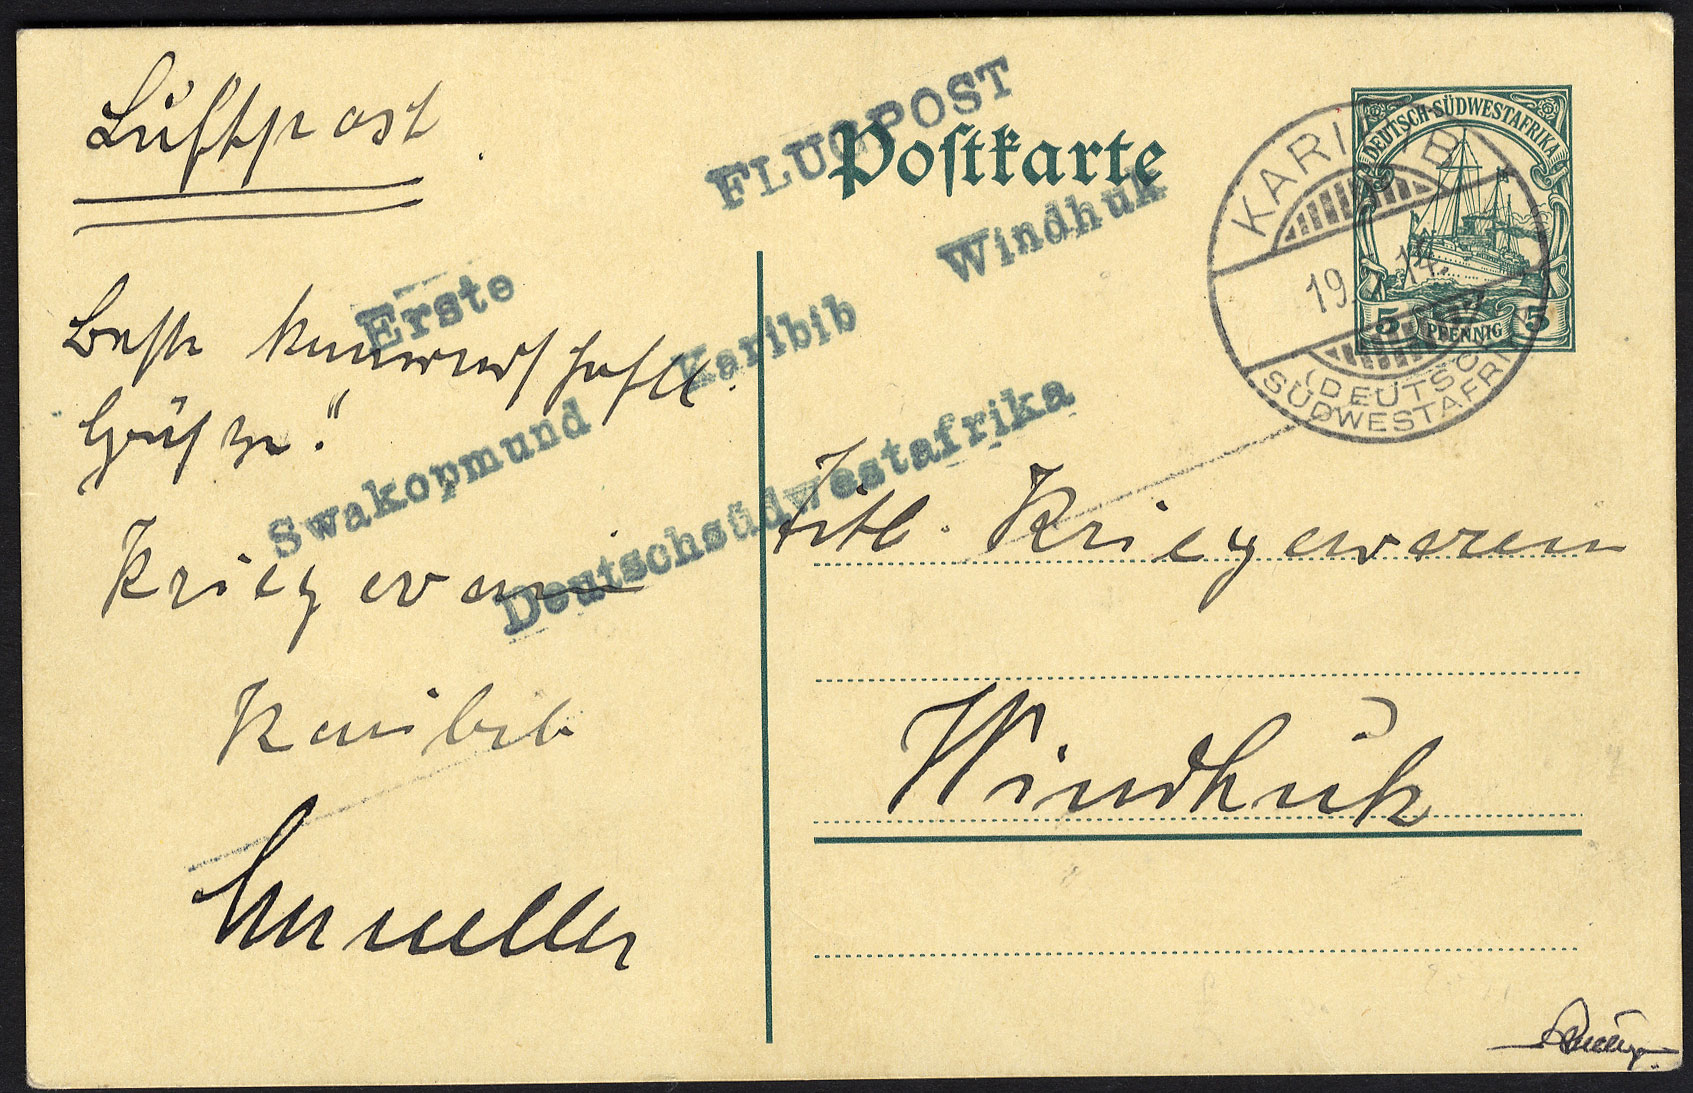 Luftpost
FLUGPOST
Postkarte
Windhuk
Erste
Karibib
Swakopmund
Deutschsüdwestafrika
DEUTSCH-SÜDWESTAFRIKA
5 PFENNIG 5
KARIBIB
19. 14.
(DEUTSCH
SÜDWESTAFRIKA
Beste
Grüße."
Kriegerverein
Karibib
Titl. Kriegerverein
Windhuk